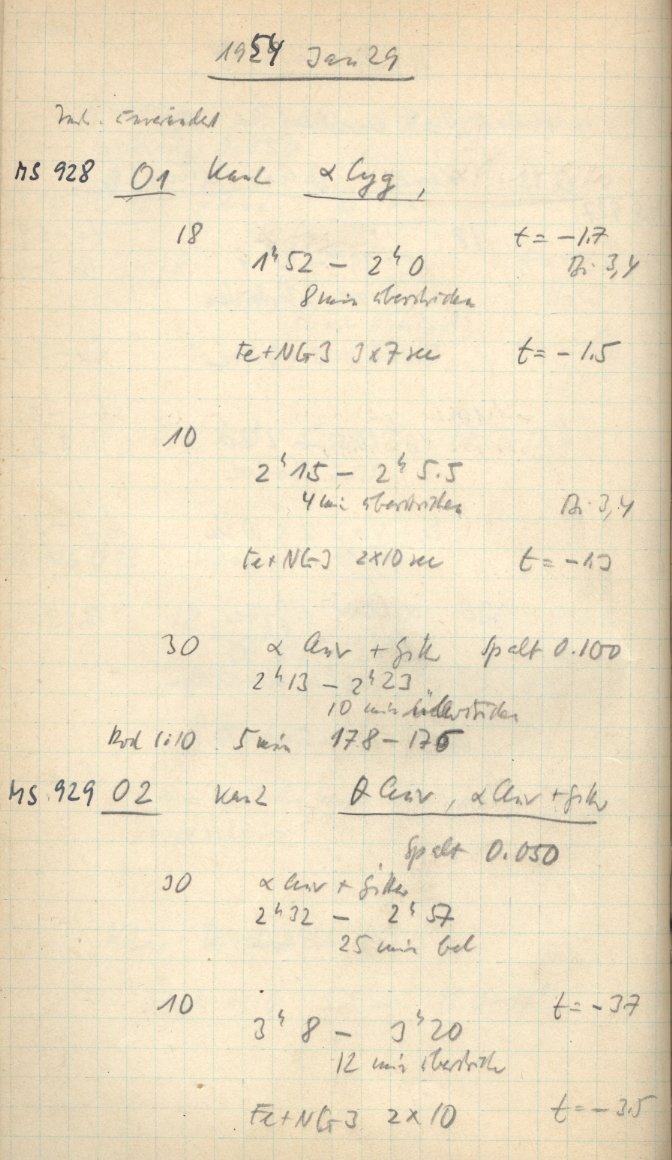 1954 Jan 29
unverändert
MS 928 O1 Kam2 α Cyg,
18 t = -1.7
1ʰ52 - 2ʰ0 Bi 3,4
8 min überstrichen
Fe+NG3 3x7 sec t = -1.5
10
2ʰ1.5 - 2ʰ5.5
4 min überstrichen Bi 3,4
Fe+NG3 2x10 sec t = -1.3
30 α Aur + Gitter Spalt 0.100
2ʰ13 - 2ʰ23
10 min überstrichen
Rod 1:10 5 min 178-176
MS 929 O2 Kam2 θ Aur, α Aur + Gitter
Spalt 0.050
30 α Aur + Gitter
2ʰ32 - 2ʰ57
25 min bel
10 t = -3.7
3ʰ8 - 3ʰ20
12 min überstrichen
Fe+NG3 2x10 t = -3.5